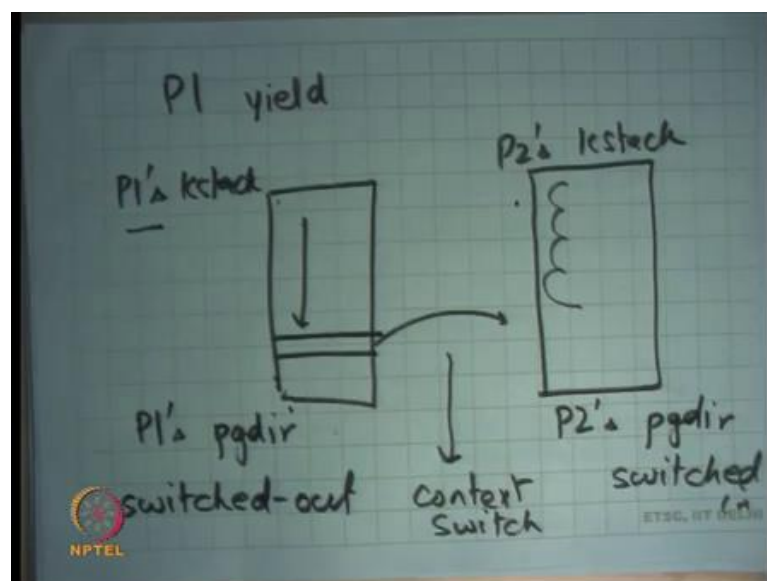 P1 yield
P1's kstack
P2's kstack
P1's pgdir
switched-out
context
switch
P2's pgdir
switched
in
NPTEL
ETSC, IIT DELHI